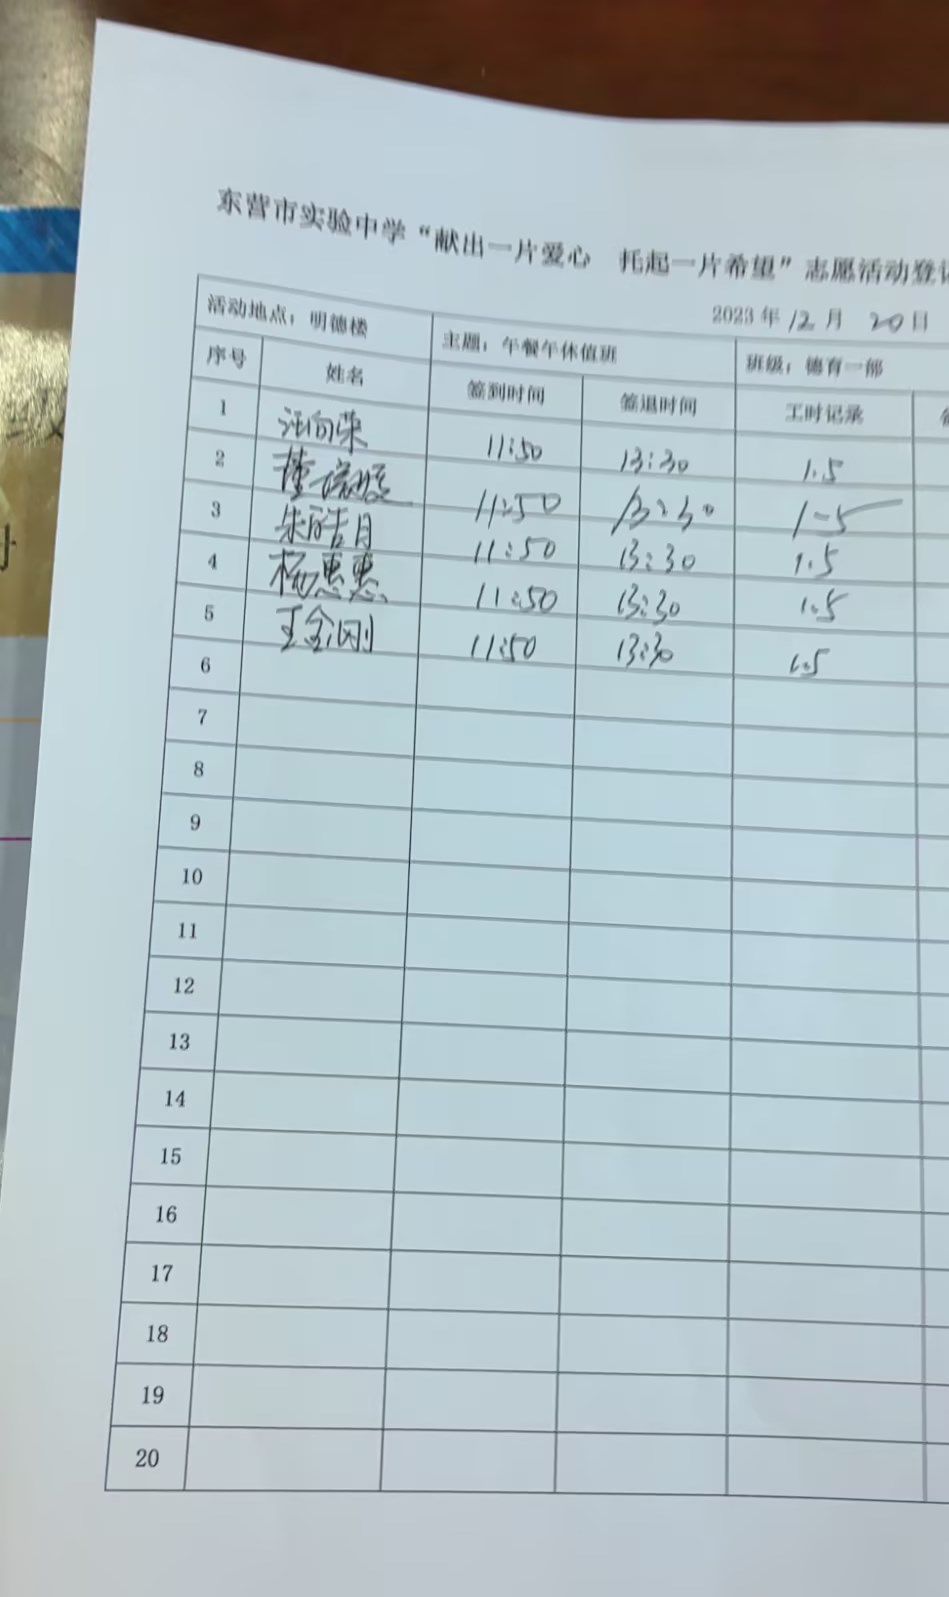 东营市实验中学“献出一片爱心 托起一片希望”志愿活动登记
2023年12月20日
活动地点：明德楼 主题：午餐午休值班 班级：德育一部
序号 姓名 签到时间 签退时间 工时记录
1 汪向荣 11:50 13:30 1.5
2 11:50 13:30 1.5
3 朱皓月 11:50 13:30 1.5
4 杨惠惠 11:50 13:30 1.5
5 王金刚 11:50 13:30 1.5
6
7
8
9
10
11
12
13
14
15
16
17
18
19
20